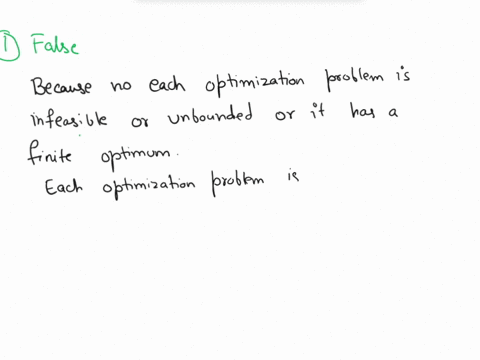 1) False
Because no each optimization problem is
infeasible or unbounded or it has a
finite optimum.
Each optimization problem is